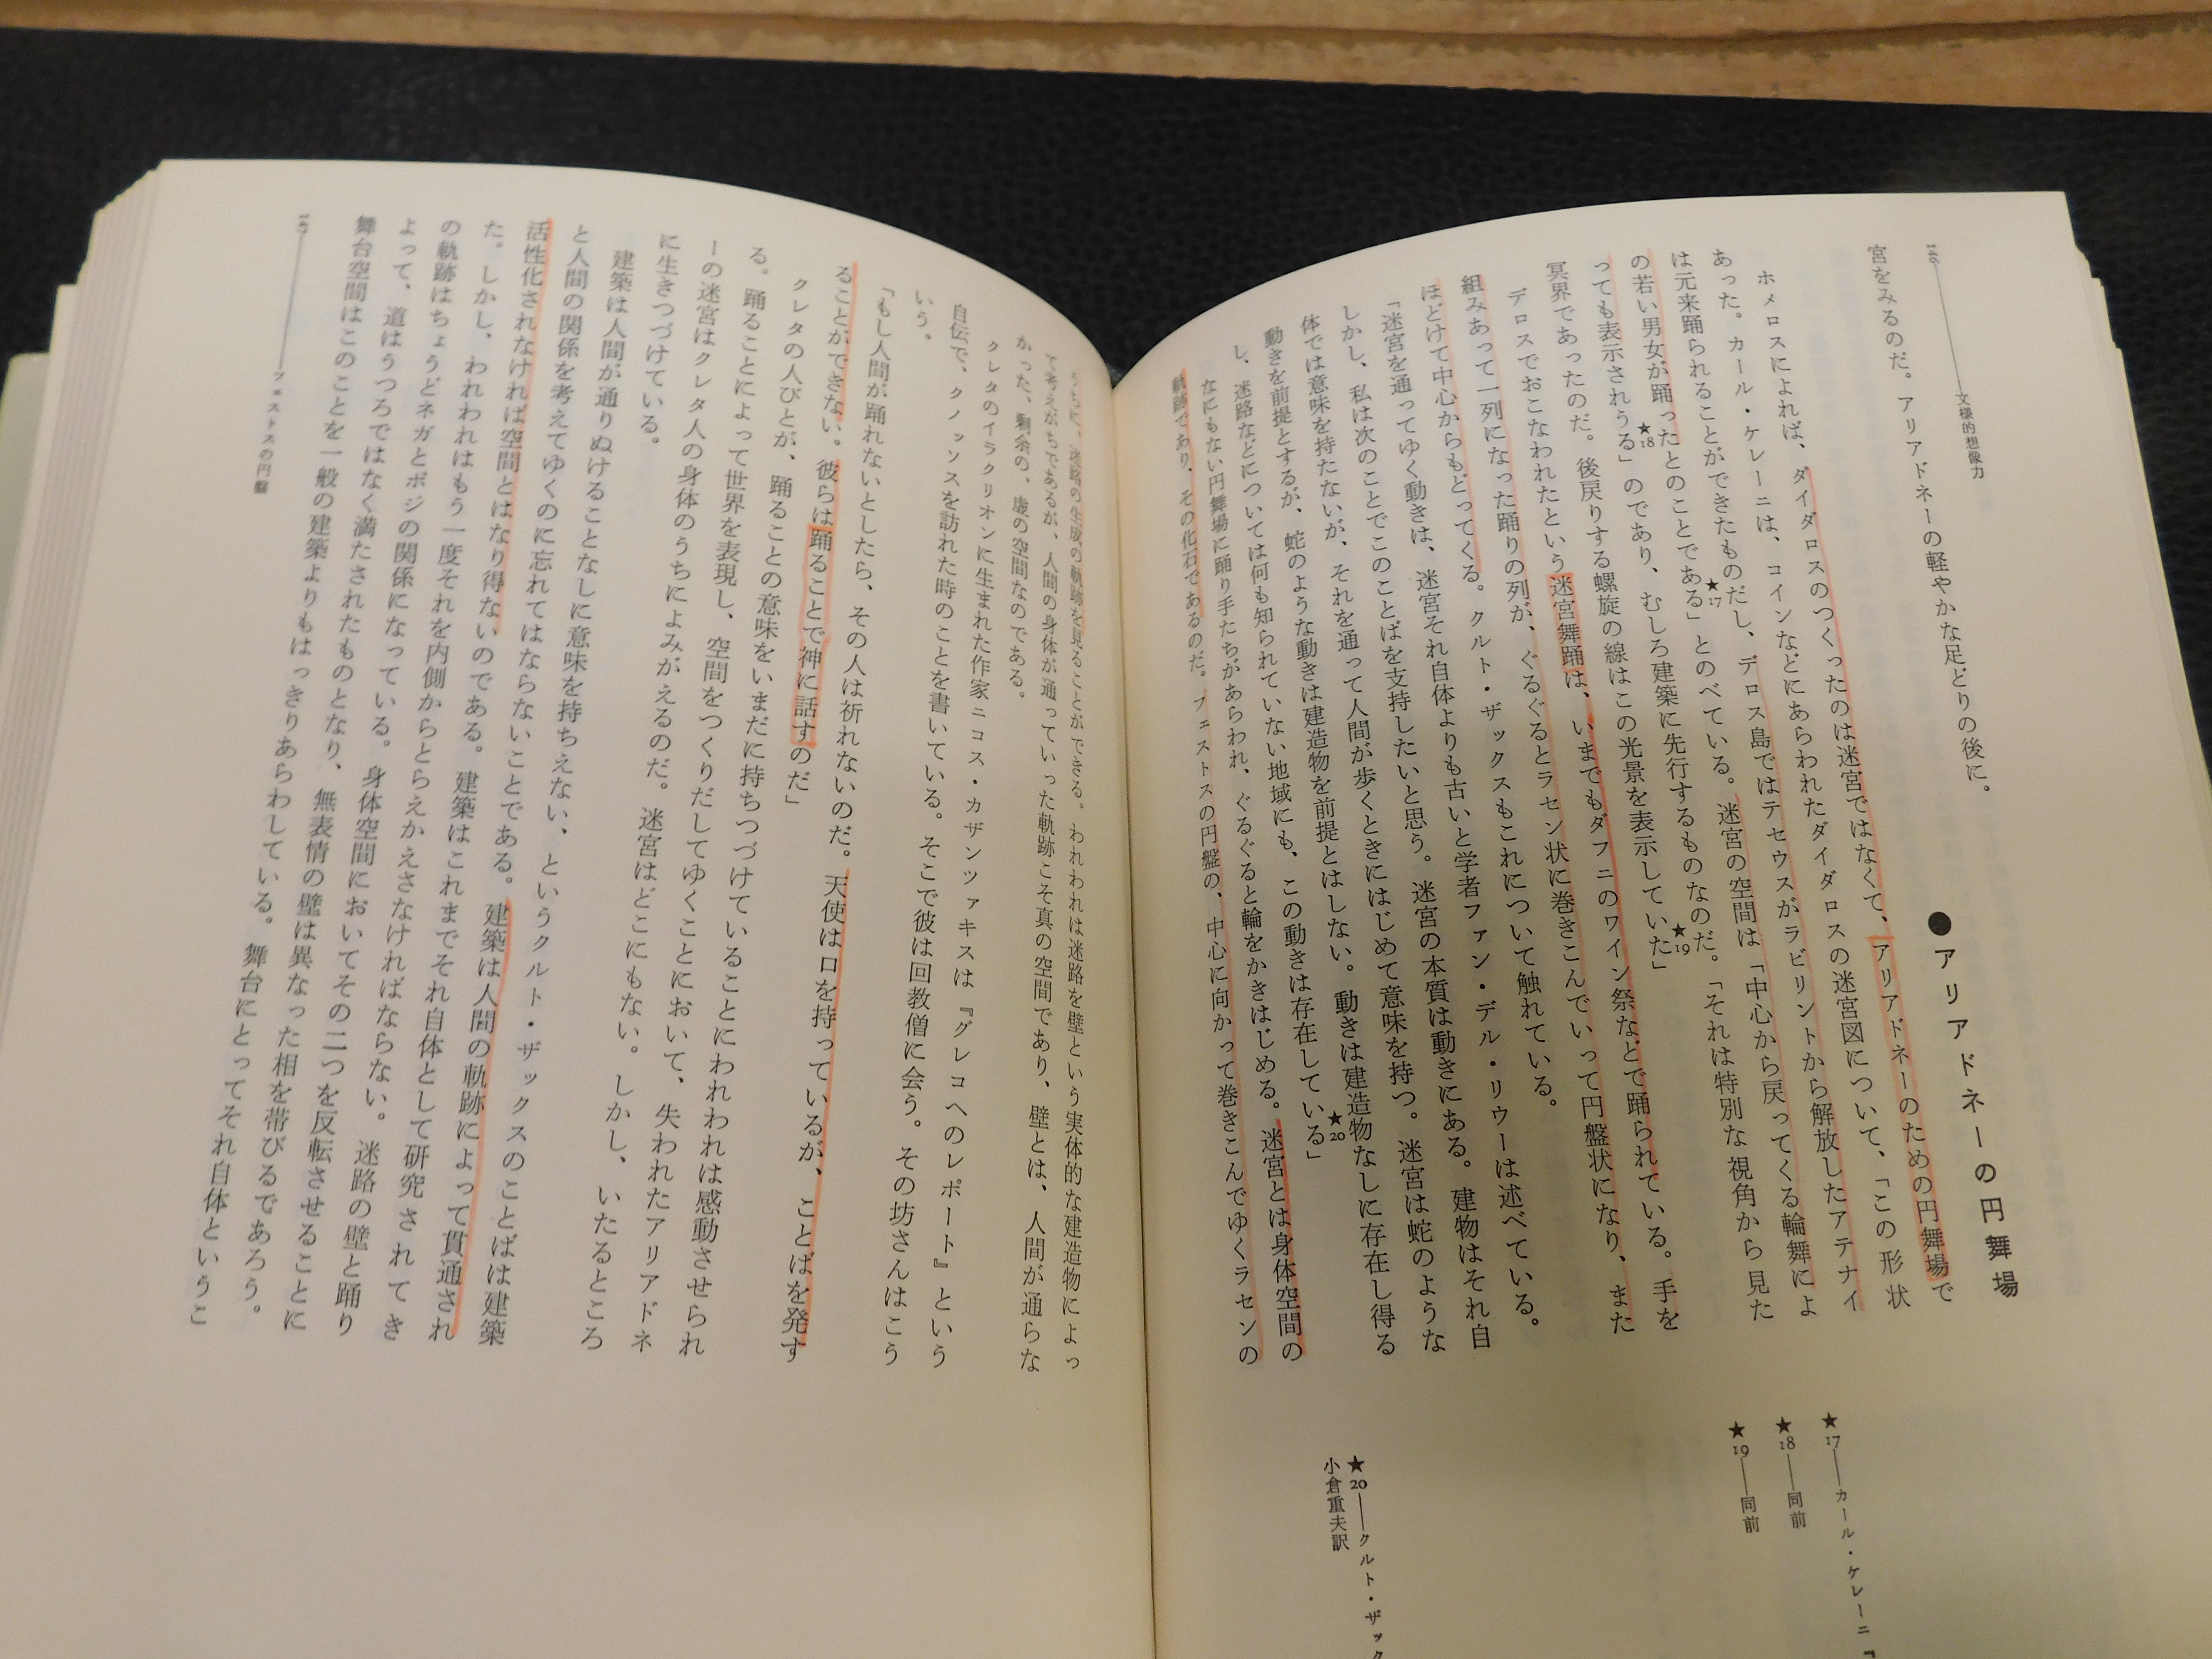 146──文様的想像力
宮をみるのだ。アリアドネーの軽やかな足どりの後に。
●アリアドネーの円舞場
ホメロスによれば、ダイダロスのつくったのは迷宮ではなくて、アリアドネーのための円舞場で
あった。カール・ケレーニは、コインなどにあらわれたダイダロスの迷宮図について、「この形状
は元来踊られることができたものだし、デロス島ではテセウスがラビリントから解放したアテナイ
の若い男女が踊ったとのことである」★17とのべている。迷宮の空間は「中心から戻ってくる輪舞によ
っても表示されうる」★18のであり、むしろ建築に先行するものなのだ。「それは特別な視角から見た
冥界であったのだ。後戻りする螺旋の線はこの光景を表示していた」★19
デロスでおこなわれたという迷宮舞踊は、いまでもダフニのワイン祭などで踊られている。手を
組みあって一列になった踊りの列が、ぐるぐるとラセン状に巻きこんでいって円盤状になり、また
ほどけて中心からもどってくる。クルト・ザックスもこれについて触れている。
「迷宮を通ってゆく動きは、迷宮それ自体よりも古いと学者ファン・デル・リウーは述べている。
しかし、私は次のことでこのことばを支持したいと思う。迷宮の本質は動きにある。建物はそれ自
体では意味を持たないが、それを通って人間が歩くときにはじめて意味を持つ。迷宮は蛇のような
動きを前提とするが、蛇のような動きは建造物を前提とはしない。動きは建造物なしに存在し得る
し、迷路などについては何も知られていない地域にも、この動きは存在している」★20
なにもない円舞場に踊り手たちがあらわれ、ぐるぐると輪をかきはじめる。迷宮とは身体空間の
軌跡であり、その化石であるのだ。フェストスの円盤の、中心に向かって巻きこんでゆくラセンの
★17──カール・ケレーニ『
★18──同前
★19──同前
★20──クルト・ザック
小倉重夫訳
うちに、迷路の生成の軌跡を見ることができる。われわれは迷路を壁という実体的な建造物によっ
て考えがちであるが、人間の身体が通っていった軌跡こそ真の空間であり、壁とは、人間が通らな
かった、剰余の、虚の空間なのである。
クレタのイラクリオンに生まれた作家ニコス・カザンツァキスは『グレコへのレポート』という
自伝で、クノッソスを訪れた時のことを書いている。そこで彼は回教僧に会う。その坊さんはこう
いう。
「もし人間が踊れないとしたら、その人は祈れないのだ。天使は口を持っているが、ことばを発す
ることができない。彼らは踊ることで神に話すのだ」
クレタの人びとが、踊ることの意味をいまだに持ちつづけていることにわれわれは感動させられ
る。踊ることによって世界を表現し、空間をつくりだしてゆくことにおいて、失われたアリアドネ
ーの迷宮はクレタ人の身体のうちによみがえるのだ。迷宮はどこにもない。しかし、いたるところ
に生きつづけている。
建築は人間が通りぬけることなしに意味を持ちえない、というクルト・ザックスのことばは建築
と人間の関係を考えてゆくのに忘れてはならないことである。建築は人間の軌跡によって貫通され
活性化されなければ空間とはなり得ないのである。建築はこれまでそれ自体として研究されてき
た。しかし、われわれはもう一度それを内側からとらえかえさなければならない。迷路の壁と踊り
の軌跡はちょうどネガとポジの関係になっている。身体空間においてその二つを反転させることに
よって、道はうつろではなく満たされたものとなり、無表情の壁は異なった相を帯びるであろう。
舞台空間はこのことを一般の建築よりもはっきりあらわしている。舞台にとってそれ自体というこ
147──フェストスの円盤